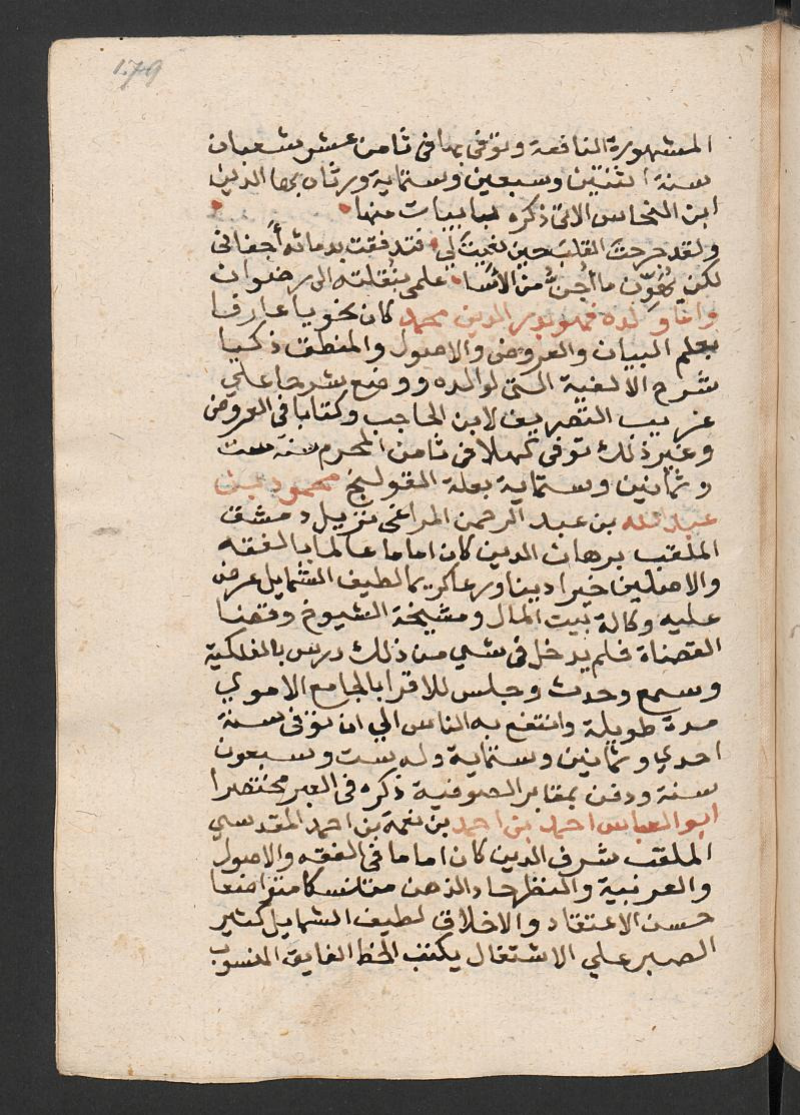 179
المشهورة النافعة وتوفى بها فى ثامن عشر شعبان
سنة اثنتين وسبعين وستماية ورثاه بها الدين
ابن النحاس الاتى ذكره بابيات منها
ولقد جرحت القلب حين نعيت لي فتدفقت بدمائه أجفانى
لكن يُهَوِّن ما أُجِنُّ من الأسَا علمى بنُقلته الى رضوان
واما ولده فهو بدر الدين محمد كان نحويا عارفا
بعلم البيان والعروض والاصول والمنطق ذكيا
شرح الالفية التى لوالده ووضع شرحا على
غريب التصريف لابن الحاجب وكتابا فى العروض
وغير ذلك توفى كهلا فى ثامن المحرم سنة ست
وثمانين وستماية بعلة القولنج محمود بن
عبد الله بن عبد الرحمن المراغى نزيل دمشق
الملقب برهان الدين كان اماما عالما بالفقه
والاصلين خيرا دينا ورعا كريما لطيف الشمايل عرض
عليه وكالة بيت المال ومشيخة الشيوخ وقضا
القضاة فلم يدخل فى شي من ذلك درس بالفلكية
وسمع وحدث وجلس للاقرا بالجامع الاموي
مدة طويلة وانتفع به الناس الي ان توفى سنة
احدي وثمانين وستماية وله ست وسبعون
سنة ودفن بمقابر الصوفية ذكره فى العبر مختصرا
ابو العباس احمد بن احمد بن نعمة بن احمد المقدسي
الملقب شرف الدين كان اماما فى الفقه والاصول
والعربية والنظر حاد الذهن متنسكا متواضعا
حسن الاعتقاد والاخلاق لطيف الشمايل كثير
الصبر علي الاشتغال يكتب الخط الفايق المنسوب